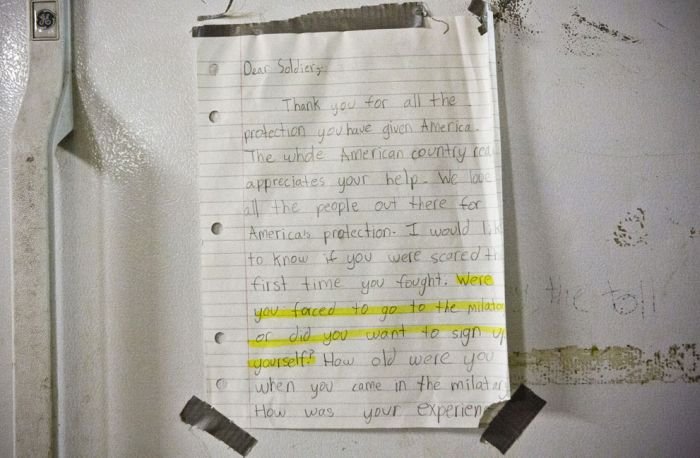 Dear Soldier,
Thank you for all the
protection you have given America.
The whole American country
appreciates your help. We love
all the people out there for
America's protection. I would
to know if you were scared
first time you fought. Were
you faced to go to the
or did you want to sign
yourself? How old were you
when you came in the
How was your
the toll